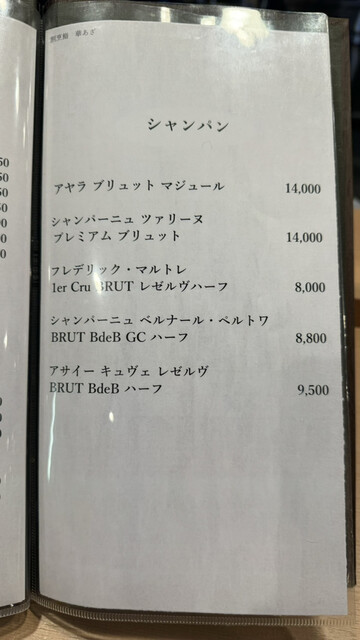 シャンパン
アヤラ ブリュット マジュール 14,000
シャンパーニュ ツァリーヌ
プレミアム ブリュット 14,000
フレデリック・マルトレ
1er Cru BRUT レゼルヴハーフ 8,000
シャンパーニュ ベルナール・ペルトワ
BRUT BdeB GC ハーフ 8,800
アサイー キュヴェ レゼルヴ
BRUT BdeB ハーフ 9,500